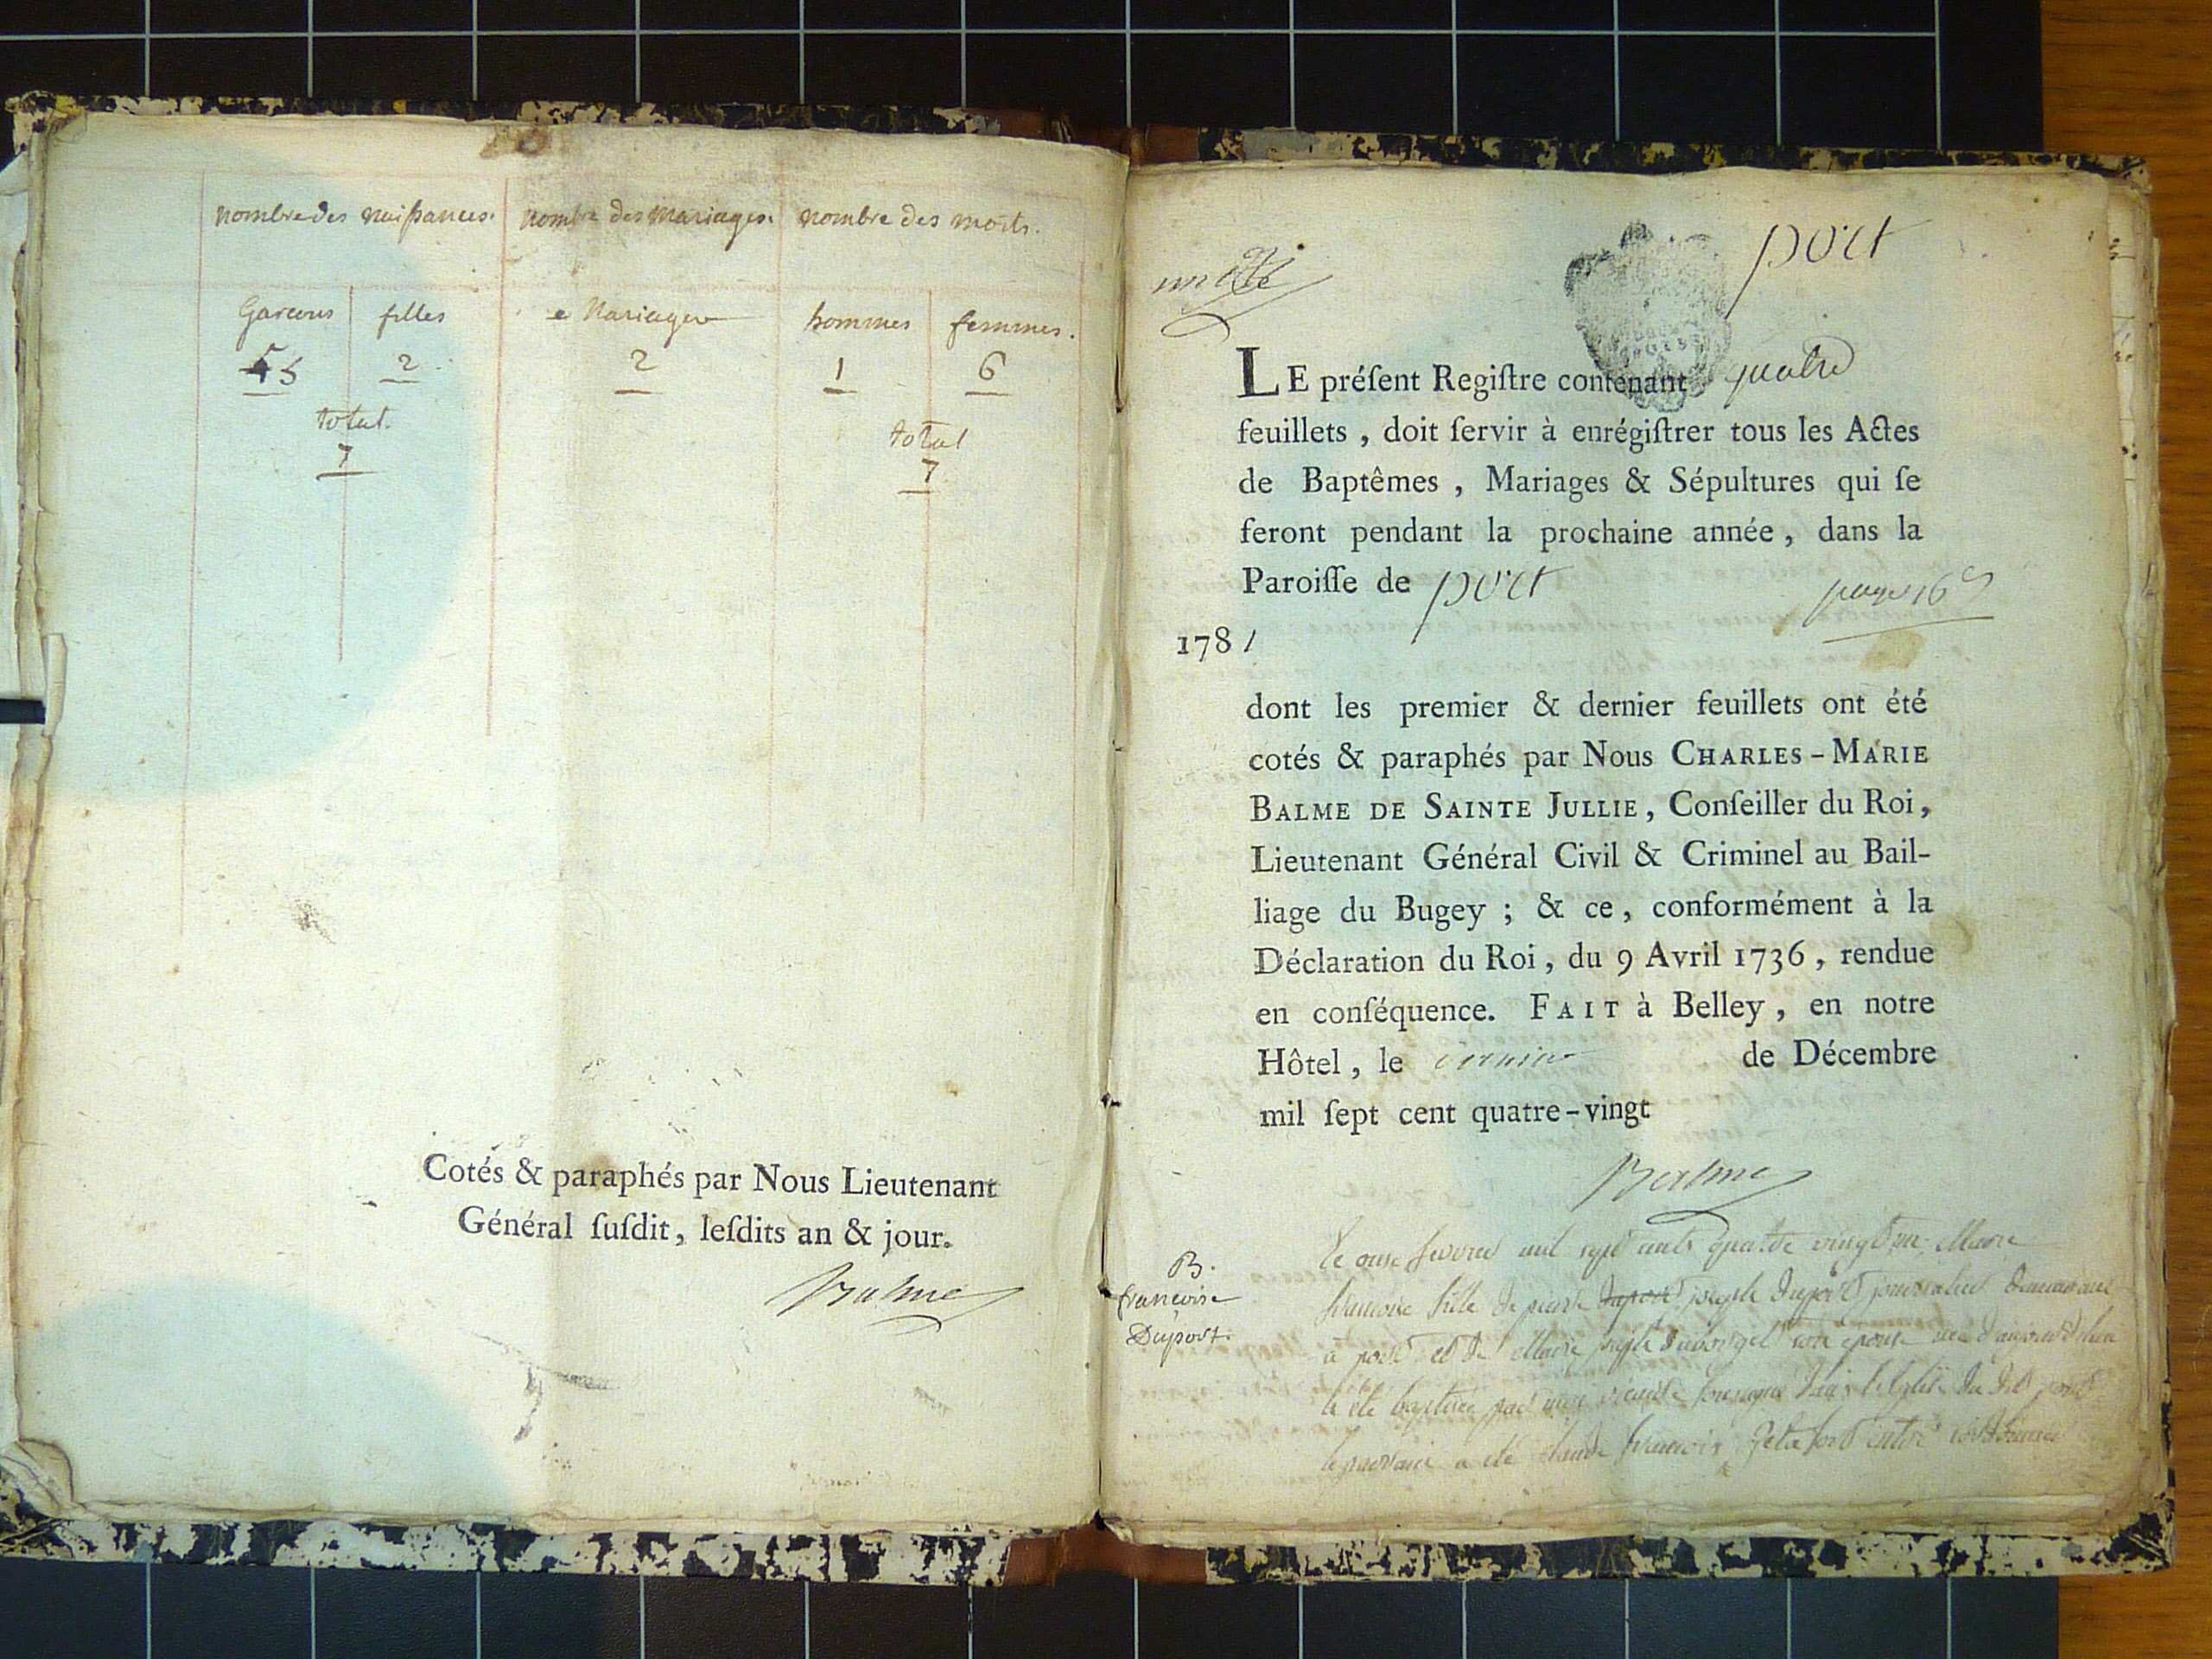 nombre des naissances. nombre des Mariages. nombre des morts.
Garcons filles Mariages hommes femmes.
5 2 2 1 6
total. total
7 7
Cotés & paraphés par Nous Lieutenant
Général ſuſdit, leſdits an & jour.
Balme
port
LE préſent Regiſtre contenant quatre
feuillets, doit ſervir à enrégiſtrer tous les Actes
de Baptêmes, Mariages & Sépultures qui ſe
feront pendant la prochaine année, dans la
Paroiſſe de port
page 16
1781
dont les premier & dernier feuillets ont été
cotés & paraphés par Nous CHARLES-MARIE
BALME DE SAINTE JULLIE, Conſeiller du Roi,
Lieutenant Général Civil & Criminel au Bail-
liage du Bugey ; & ce, conformément à la
Déclaration du Roi, du 9 Avril 1736, rendue
en conſéquence. FAIT à Belley, en notre
Hôtel, le de Décembre
mil ſept cent quatre-vingt
Balme
B.
francoise
Duport.
le onze fevrier mil sept cents quatre vingt un Marie
francoise fille de pierre joseph Duport journalier demeurant
a port et de Marie son epouse née
a été baptisée par dans l'Eglise du dit port
le parrain a été Claude francois